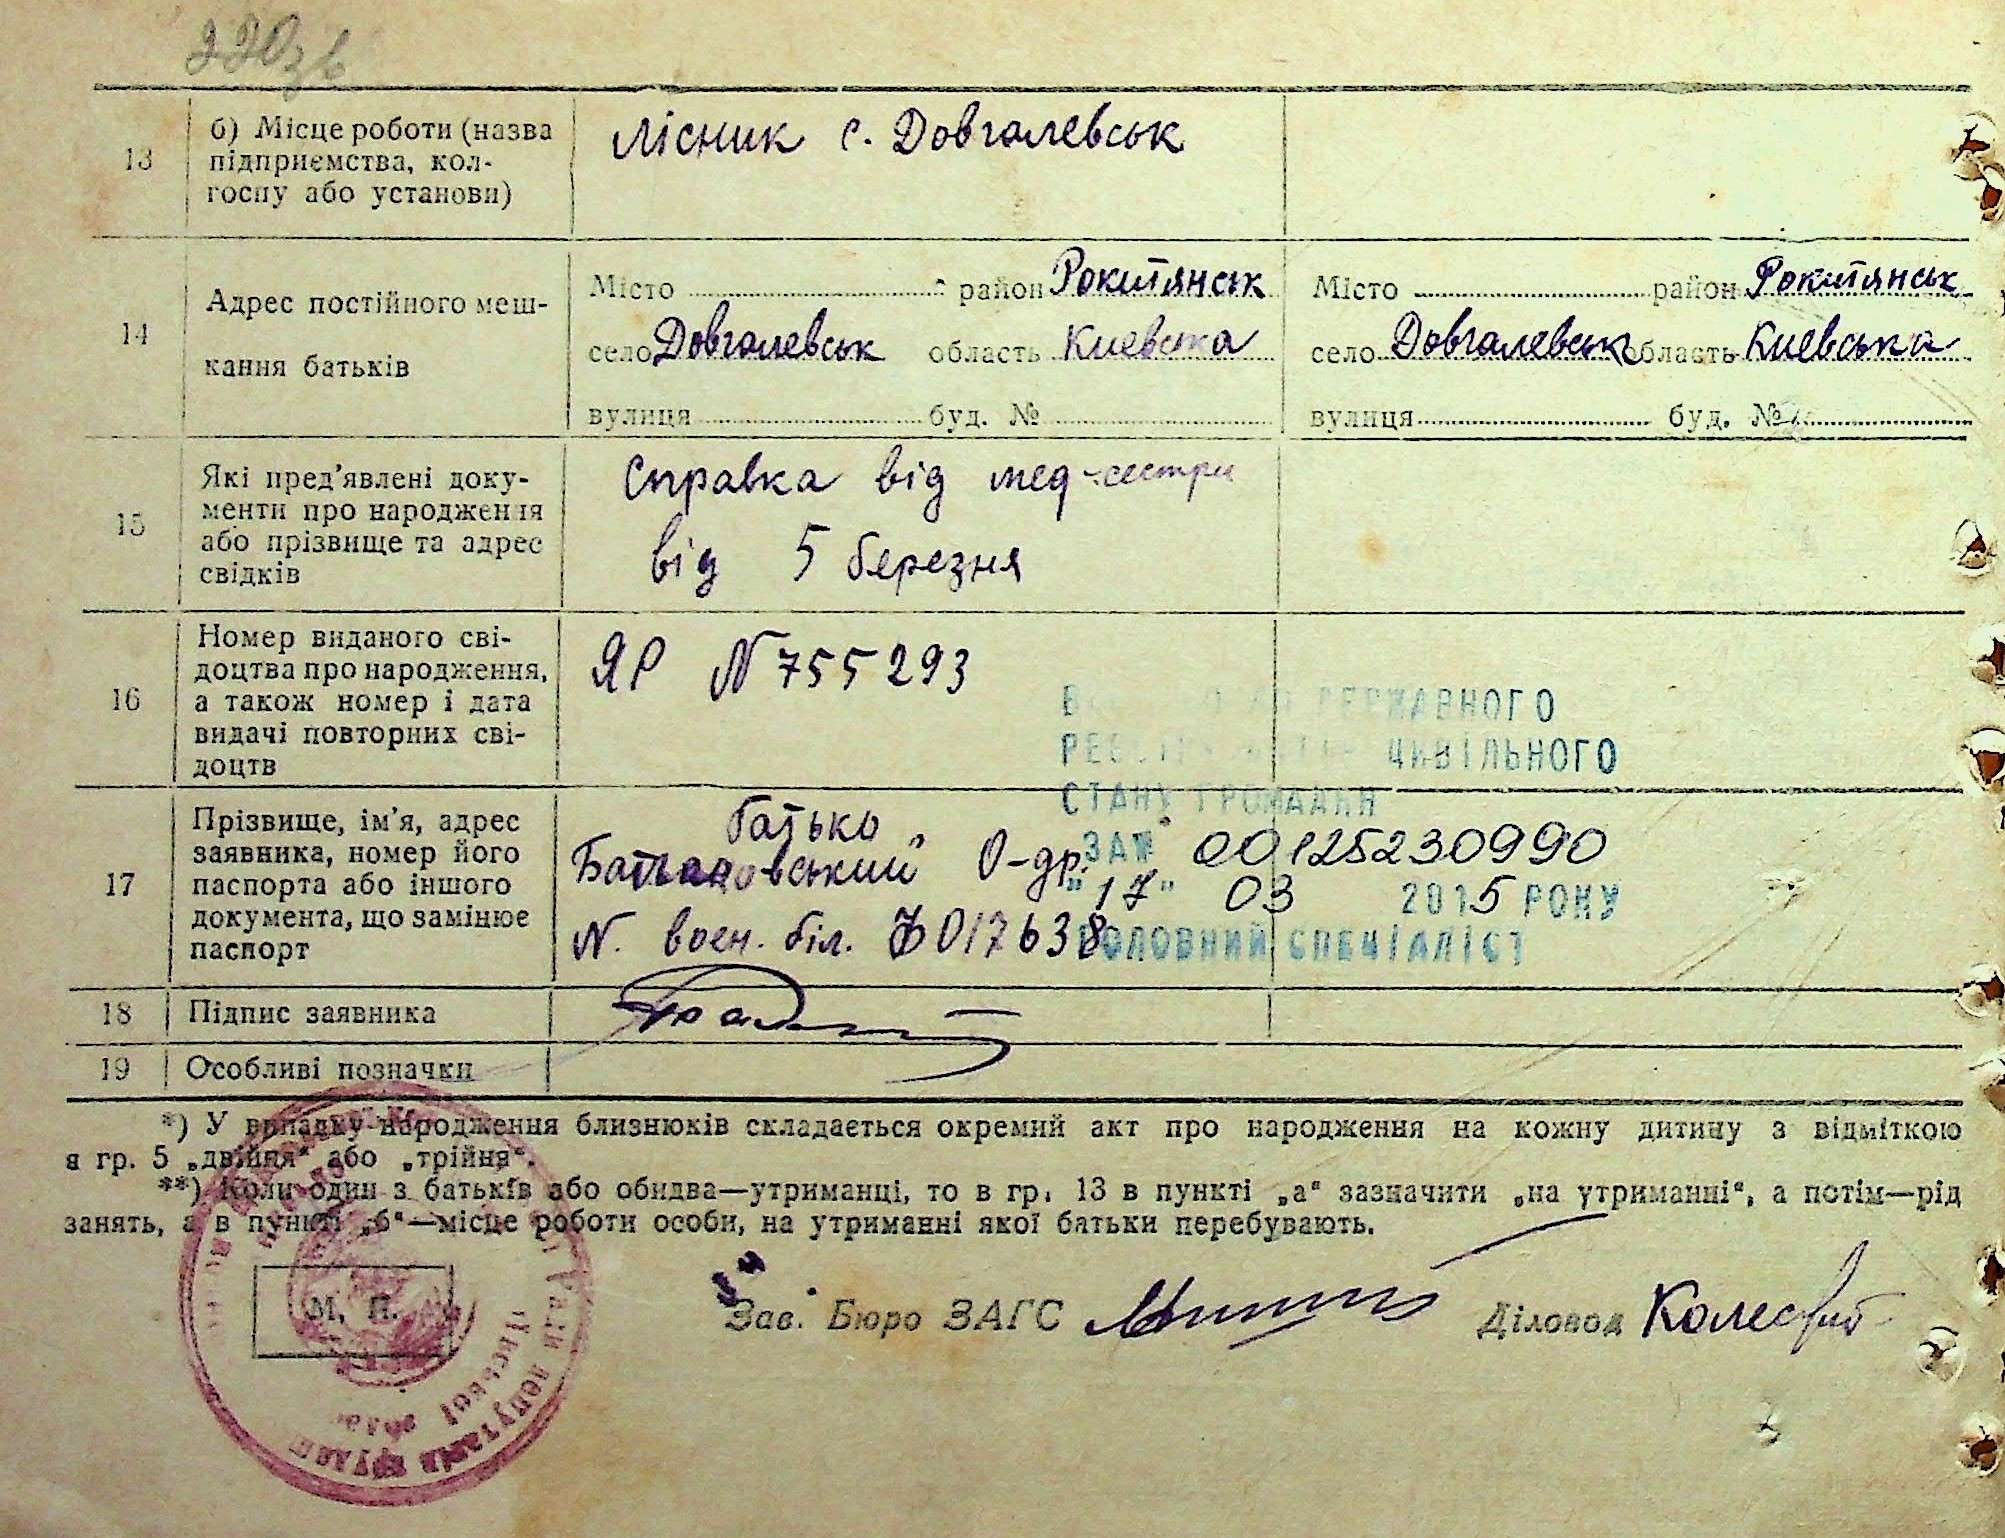 220зв
13
б) Місце роботи (назва
підприємства, кол-
госпу або установи)
Лісник с. Довгалевськ
14
Адрес постійного меш-
кання батьків
Місто район Рокитянськ
село Довгалевськ область Киевська
вулиця буд. №
Місто район Рокитянськ
село Довгалевськ область Киевська
вулиця буд. №
15
Які пред'явлені доку-
менти про народження
або прізвище та адрес
свідків
Справка від мед-сестри
від 5 березня
16
Номер виданого сві-
доцтва про народження,
а також номер і дата
видачі повторних сві-
доцтв
ЯР N 755293
ДЕРЖАВНОГО
ЦИВІЛЬНОГО
СТАНУ ГРОМАДЯН
ЗА № 00125230990
"17" 03 2015 РОКУ
ГОЛОВНИЙ СПЕЦІАЛІСТ
17
Прізвище, ім'я, адрес
заявника, номер його
паспорта або іншого
документа, що замінює
паспорт
батько
О-др.
N. воен. біл. 017638
18
Підпис заявника
19
Особливі позначки
*) У випадку народження близнюків складається окремий акт про народження на кожну дитину з відміткою
я гр. 5 „двійня“ або „трійня“.
**) Коли один з батьків або обидва—утриманці, то в гр. 13 в пункті „а“ зазначити „на утриманні“, а потім—рід
занять, а в пункті „б“—місце роботи особи, на утриманні якої батьки перебувають.
М. П.
Зав. Бюро ЗАГС
Діловод
депутатів трудящ